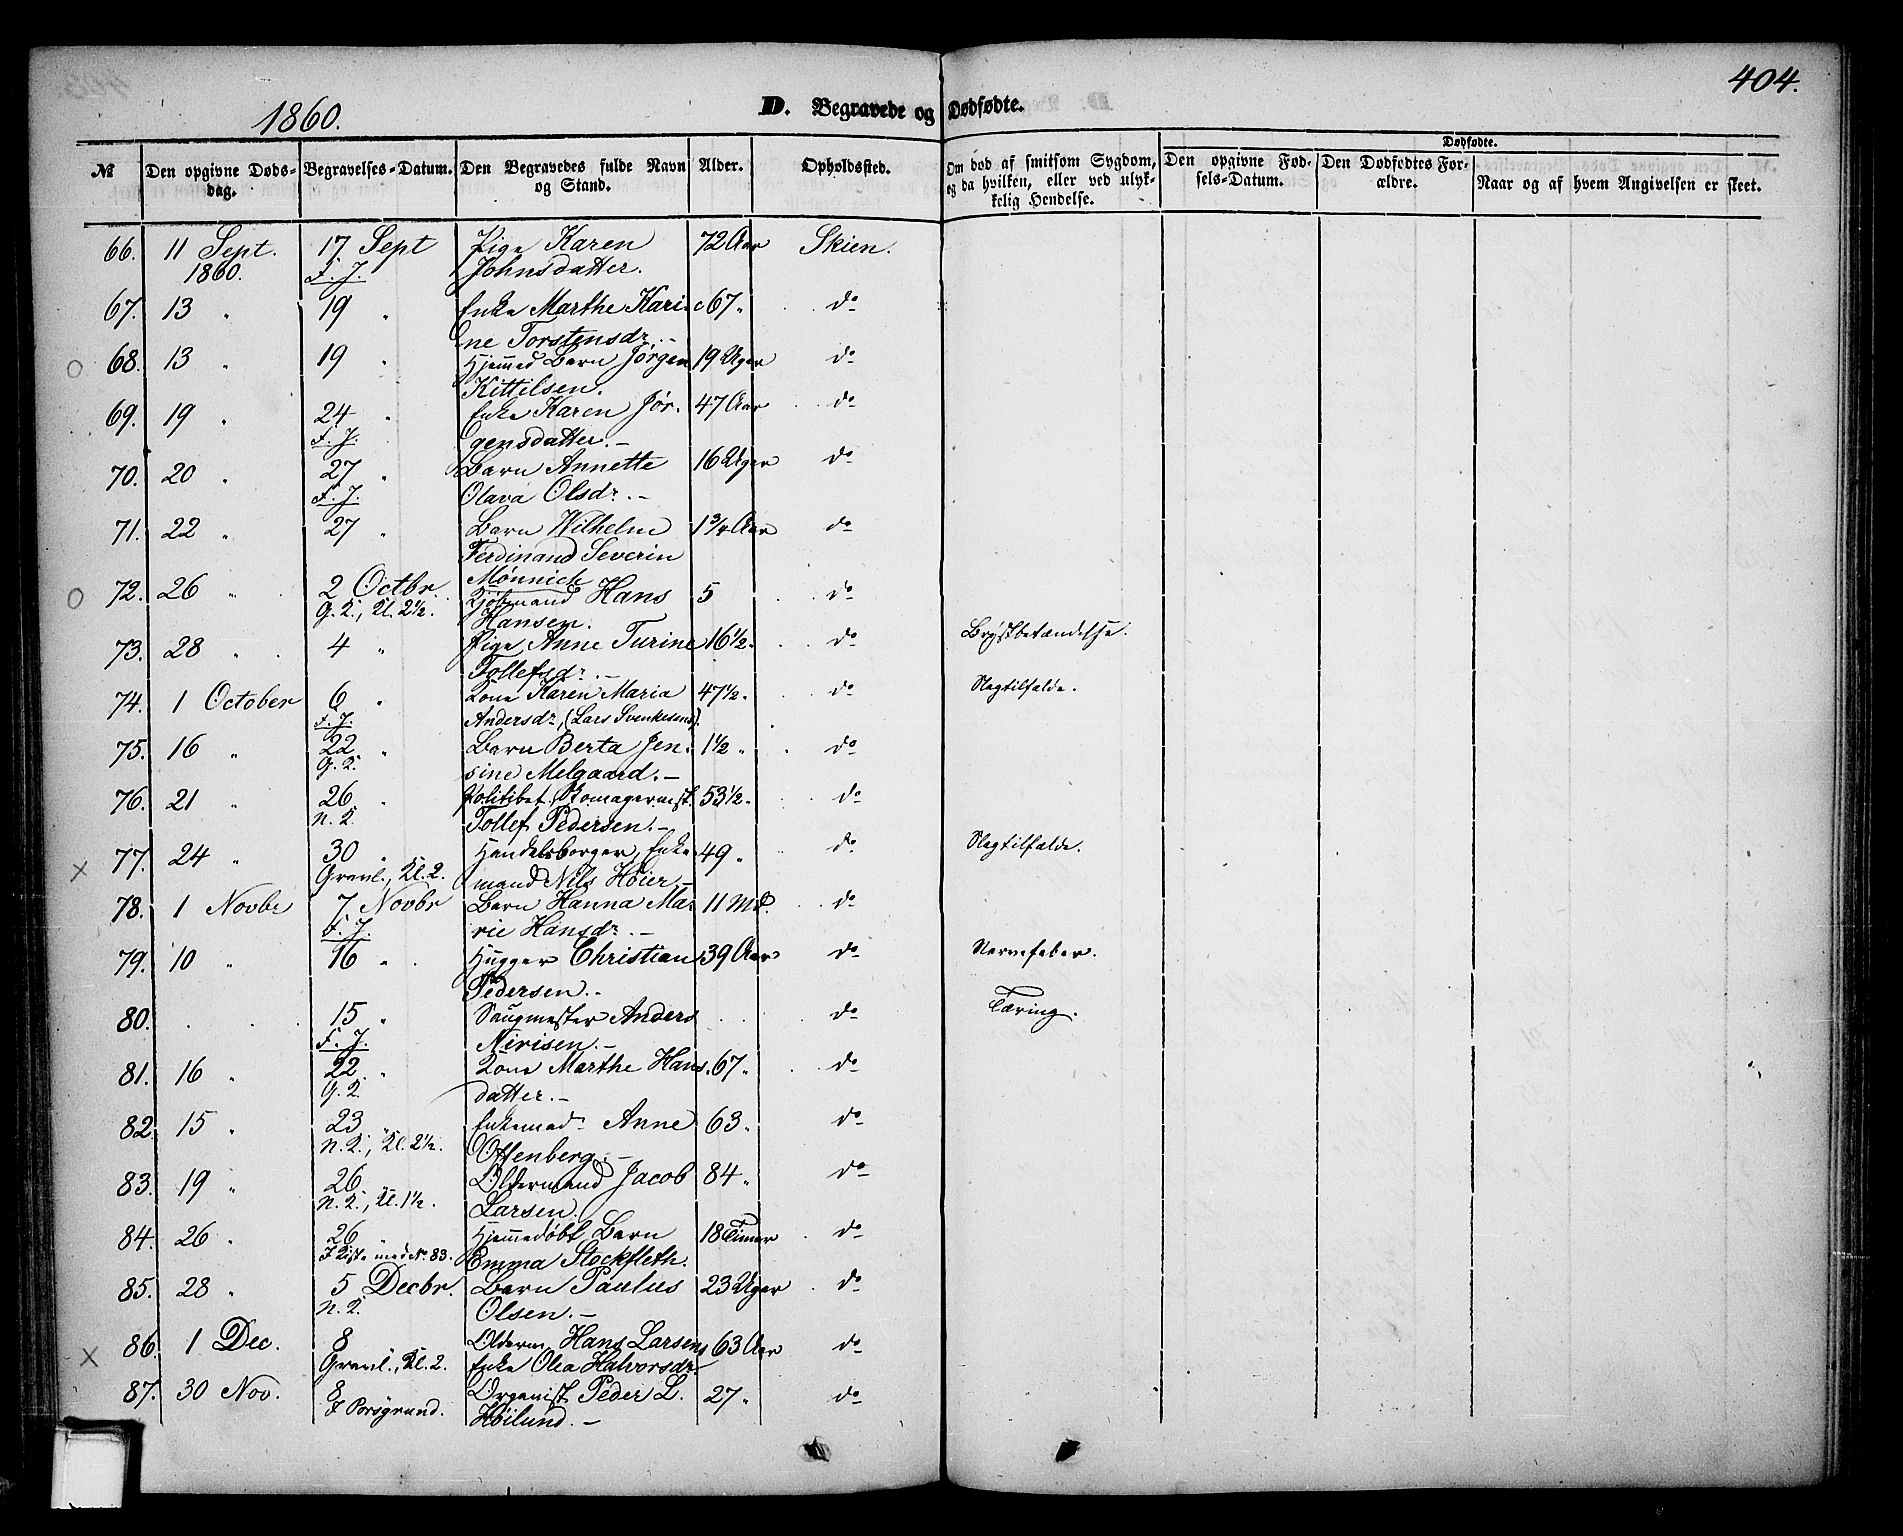 404.
1860.
D. Begravede og Dødfødte.
Dødfødte.
№ Den opgivne Døds-dag. Begravelses-Datum. Den Begravedes fulde Navn og Stand. Alder. Opholdssted. Om død af smitsom Sygdom, og da hvilken, eller ved ulyk-kelig Hendelse. Den opgivne Fød-sels-Datum. Den Dødfødtes For-ældre. Naar og af hvem Angivelsen er skeet.
66. 11 Sept. 17 Sept Pige Karen 72 Aar Skien.
1860. F. J. Johnsdatter.
67. 13 " 19 " Enke Marthe Kari- 67 " do
ne Torstensdr. -
68. 13 " 19 " Hjemmed Barn Jörgen 19 Uger do
Kittilsen.
69. 19 " 24 " Enke Karen Jör- 47 Aar do
F. J. gensdatter. -
70. 20 " 27 " Barn Annette 16 Uger do
F. J. Olava Olsdr. -
71. 22 " 27 " Barn Wilhelm 1 3/4 Aar do
Ferdinand Severin
Mönnich
72. 26 " 2 Octbr. Kjöbmand Hans 5 do
G. K., Kl. 2½. Hansen.
73. 28 " 4 " Pige Anne Turine 16½ " do Brystbetændelse.
Tollefsdr. -
74. 1 October 6 " Kone Karen Maria 47½ " do Slagtilfælde.
F. J. Andersdr, (Lars Svenkesens).
75. 16 " 22 " Barn Berta Jen- 1½ " do
G. K. sine Melgaard. -
76. 21 " 26 " Politibet. Skomagermest. 53½ " do
N. K. Tollef Pedersen. -
77. 24 " 30 " Handelsborger, Enke- 49 " do Slagtilfælde.
Gravl., Kl. 2. mand Nils Höier -
78. 1 Novbr 7 Novbr Barn Hanna Ma- 11 Md. do
F. J. rie Hansdr. -
79. 10 " 16 " Hugger Christian 39 Aar do Nervefeber.
Pedersen. -
80. 15 " Saugmester Anders do Tæring.
F. J. Nirisen. -
81. 16 " 22 " Kone Marthe Hans- 67 " do
G. K. datter. -
82. 15 " 23 " Enkemad. Anne 63 " do
N. K., Kl. 2½. Offenberg. -
83. 19 " 26 " Oldermand Jacob 84 " do
N. K., Kl. 1½. Larsen.
84. 26 " 26 " Hjemmedøbt Barn 18 Timer do
I Kiste med No. 83. Emma Stockfleth.
85. 28 " 5 Decbr. Barn Paulus 23 Uger do
N. K. Olsen. -
86. 1 Dec. 8 Olderm. Hans Larsens 63 Aar do
Gravl., Kl. 2. Enke Olea Halvorsdr
87. 30 Nov. 8 Organist Peder L. 27 " do
I Porsgrund. Höilund. -